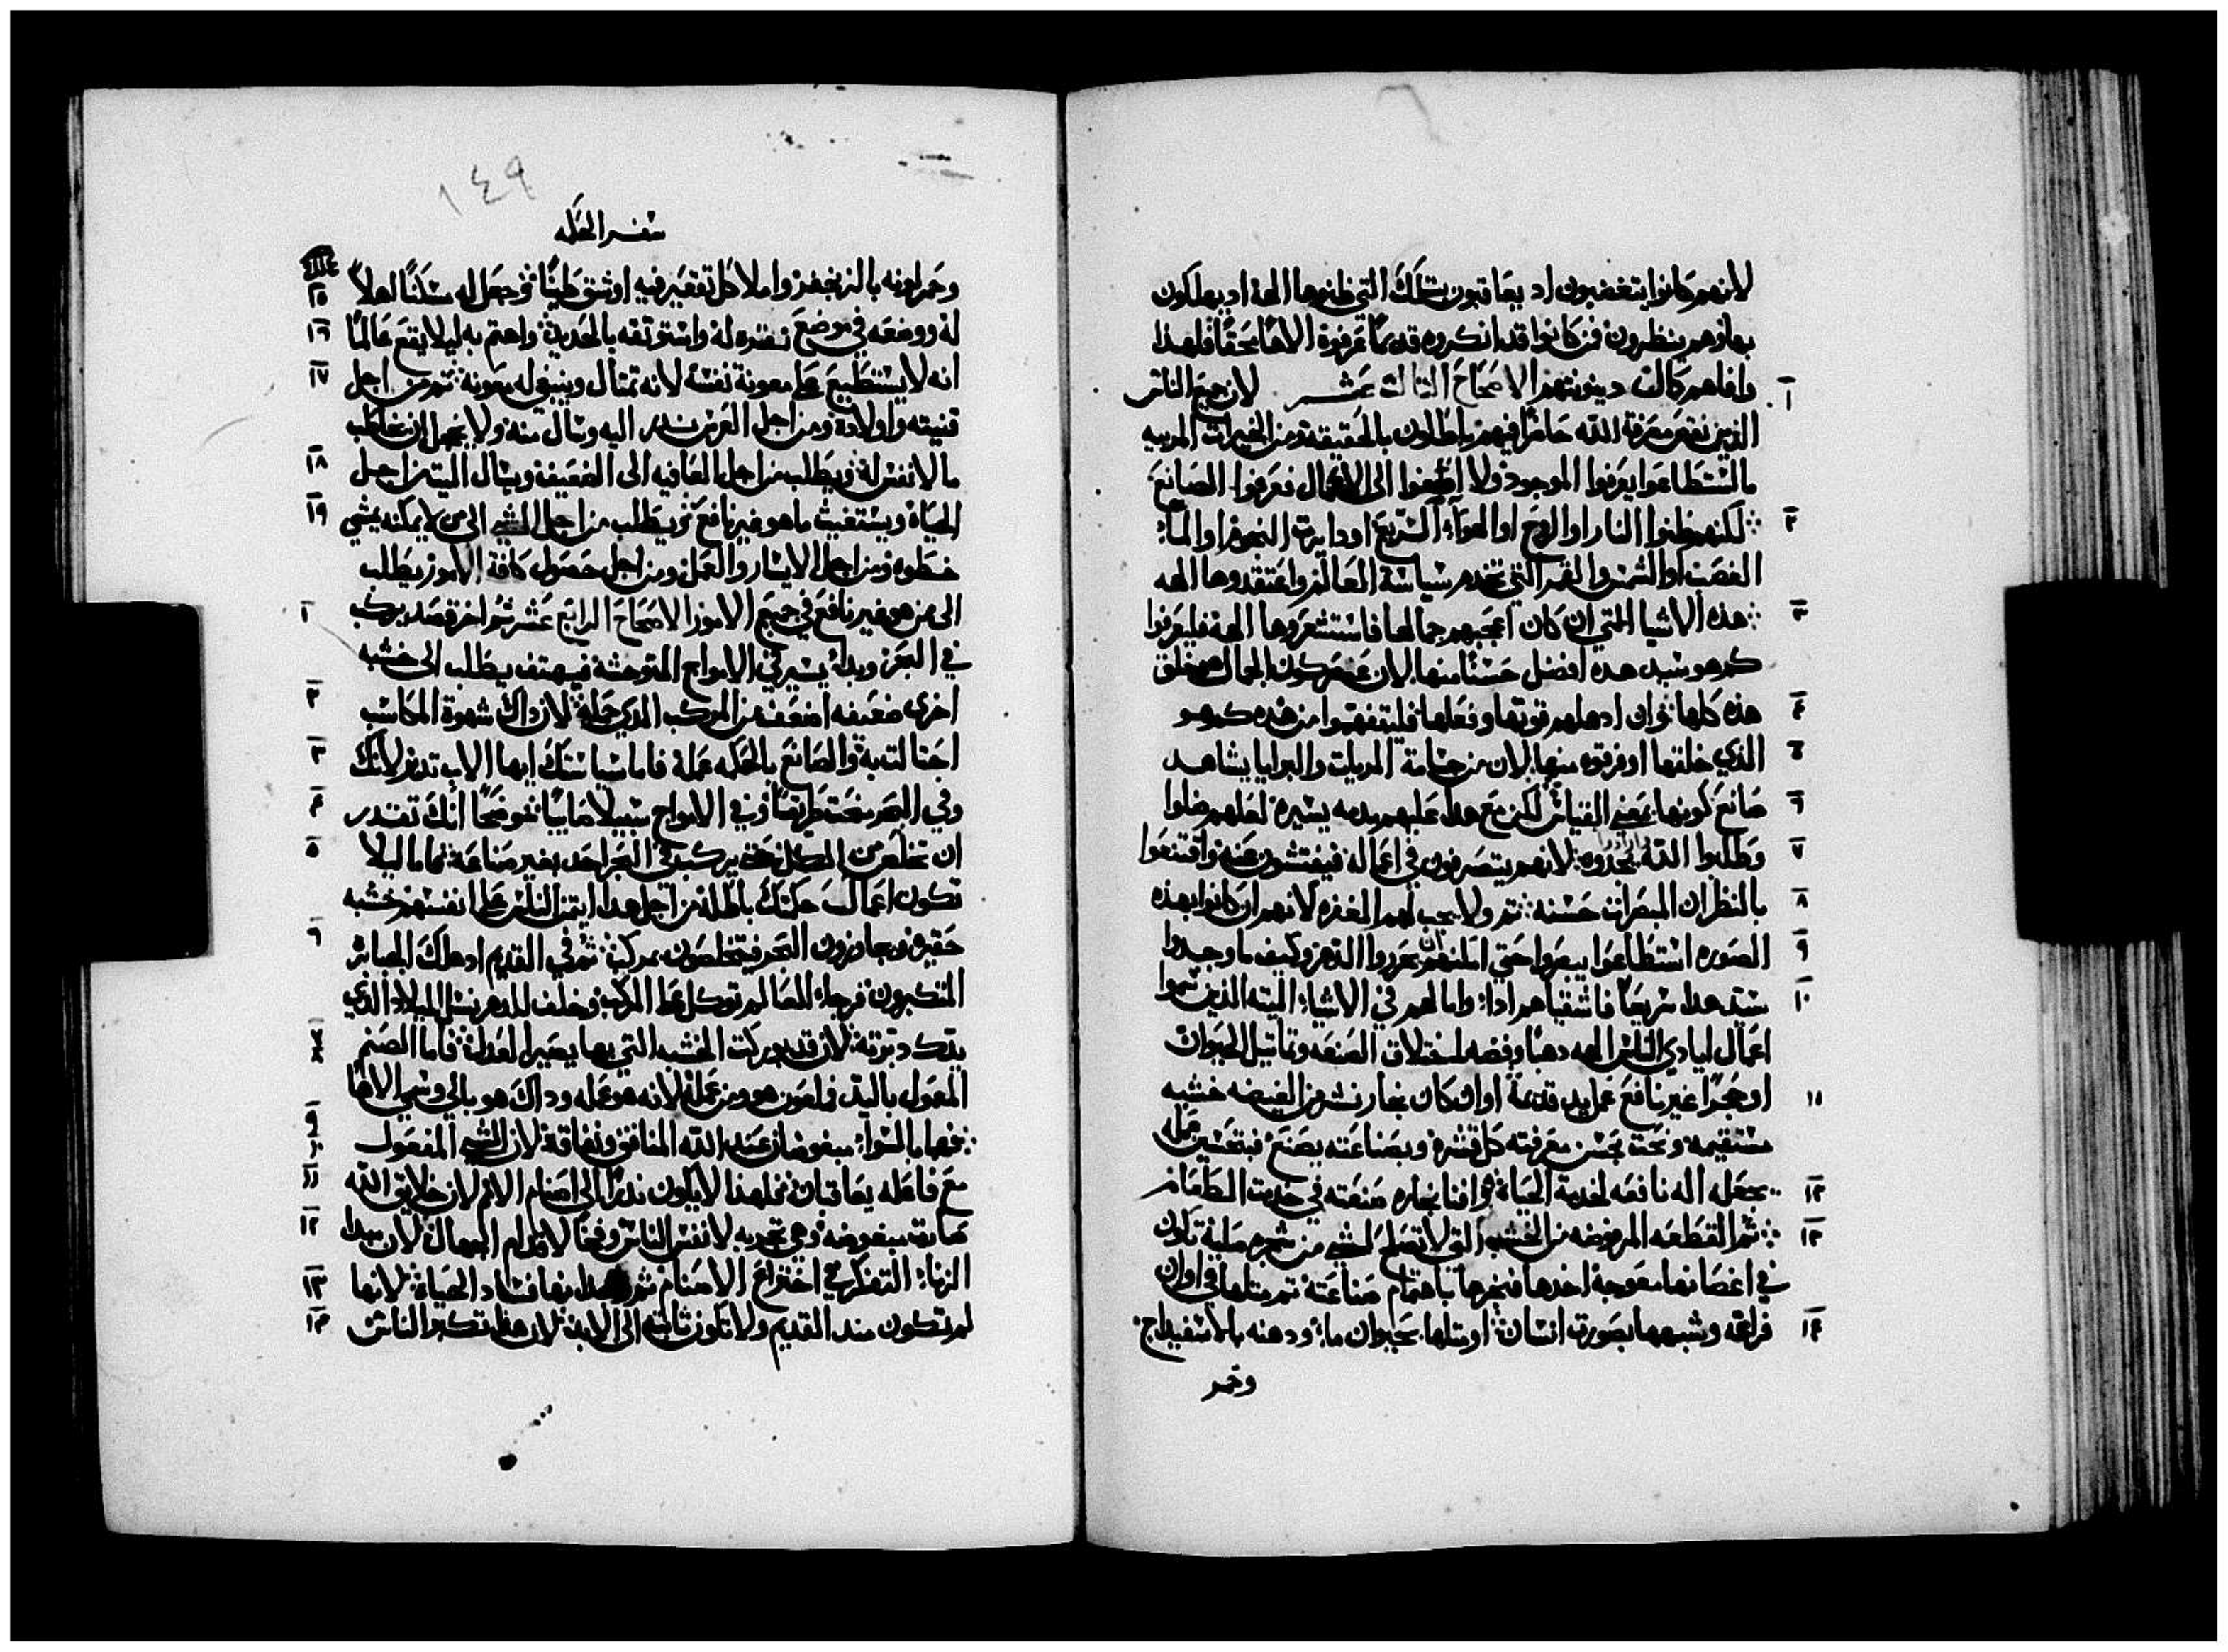 لانهم كانوا يتغضبون اد يعاقبون بتلك التي ظنوها الهة اد يهلكون
بها وهم ينظرون فمن كانوا قد انكروه قديمًا عرفوه الاهًا محقًا فلهذا
وافاهم كمالت دينونتهم الاصحاح التالت عشر لان جميع الناس
ا
الذين نقص معرفة الله حاضرًا فيهم باطلون بالحقيقة ومن الخيرات المرييه
ما استطاعوا يعرفوا الموجود ولا اصغوا الى الاعمال فعرفوا الصانع
٢ لكنهم ظنوا النار او الروح او الهواء السريع او دايرت النجوم او الماء
الغصب او الشمس والقمر التي تخدم سياسة العالم واعتقدوها الهه
٣ هذه الاشيا التي ان كان اعجبهم جمالها فاستشعروها الهة فليعرفوا
كم هو سيد هده افضل حسنًا منها لان عنصر كون الجمال هو خلق
٤ هذه كلها وان ادهلهم قوتها وفعلها فليتفهموا من هذه كم هو
٥ الذي خلقها اوفر قوه منها لان من جسامة المريات والبرايا يشاهد
٦ صانع كونها بمعنى القياس لكن مع هدا عليهم مدمه يسيره لعلهم ضلوا
٧ وطلبوا الله يجدوه لانهم يتصرفون في اعماله فيفتشون عنه واقتنعوا
٨ بالنظر ان المبصرات حسنه ثم ولا يجب لهم المغفره لانهم ان كانوا بهذه
٩ الصوره استطاعوا يبصروا حتي امكنهم ان يحرروا الدهر وكيف ما وجدوا
١٠ سيد هدا سريعًا فاشقياهم ادا واما لهم في الاشياء الميته الذين سموا
اعمال ايادي الناس الهه دهبًا وفضه لختلاق الصنعه وتماتيل الحيوان
او حجرًا غير نافع عمل يد قديمة او ان كان نجار نشر من الغيضه خشبه
١١
مستقيمه ونحت بحسن معرفته كل قشره وبصناعته يصنع فبتحسين عمله
١٢ يجعله اله نافعه لخدمة الحياة وافنا نجاره صنعته في خدمت الطعام
١٣ ثم القطعه المرفوضه من الخشب التي لا تصلح لشي من شجره صلبه تكون
في اغصانها معوجة اخدها فنجرها باهتمام صناعته ثم مثلها في اوان
١٤ فراغه وشبهها بصورت انسان او مثلها بحيوان ما ودهنه بالاسفيداج
وحمر
١٤٩
سفر الحكمه
وحمر لونه بالزنجفر واملا كل تقعير فيه او شق طينًا وجعل له مسكنًا اهلاً
١٥
١٦ له ووضعه في موضع نقده له واستوتقه بالحديد واهتم به ليلا يقع عالمًا
١٧ انه لا يستطيع على معونة نفسه لانه تمتال وينبغي له معونة ثم من اجل
قنيته واولاده ومن اجل العرس ندر اليه وسال منه ولا يخجل ان يخاطب
١٨ ما لا نفس له ويطلب من اجل العافيه الى الضعيف ويسال الميت من اجل
١٩ الحياة ويستغيث ما هو غير نافع ثم يطلب من اجل السير الى من لا يمكنه يمشي
خطوه ومن اجل الايسار والعمل ومن اجل حصول كافة الامور يطلب
ا الى من هو غير نافع في جميع الامور الاصحاح الرابع عشر ثم اخر قصد يركب
في البحر وبدا يسير في الامواج المتوحشة فيهتف يطلب الى خشبه
٢ اخرى ضعيفه اضعف من المركب الذي حمله لان داك شهوة المكاسب
٣ احتالت به والصانع بالحكمه عمله فاما سياستك ايها الاب تدبر لانك
٤ وفي البحر منحت طريقًا وفي الامواج سبيلا صايبًا موضحًا انك تقدر
٥ ان تخلص من الكل حتى يركب في البحر احد بغير صناعة فاما ليلا
تكون اعمال حكمتك باطلة من اجل هدا ايتمن الناس على انفسهم خشبه
٦ حقيره ويجاوزون البحر فيتخلصون بمركب ثم في القديم اد هلك الجبابره
المتكبرون فرجاء العالم توكل على المركب وخلف للدهر نسل الميلاد الذي
٧ يدك دبرته لان قد بوركت الخشبه التي بها يصير العدل فاما الصنم
٨
المعمول باليد فملعون هو ومن عمله لانه هو عمله وداك هو بالي وسمي الاهًا
٩ فهما بالسواء مبغوضان عند الله المنافق ونفاقه لان الشي المفعول
١٠
١١ مع فاعله يعاقبان فمن لهدا لا يكون ندرًا الى اصنام الامم لان خلايق الله
١٢ صارت مبغوضه وهي تجربه لانفس الناس وفخًا لاقدام الجهال لان مبدا
١٣ الزناء التفكر في اختراع الاصنام ثم وجدانها فساد الحياة لانها
١٤ لم تكون مند القديم ولا تكون ثابته الى الابد لان هدا تكبر الناس